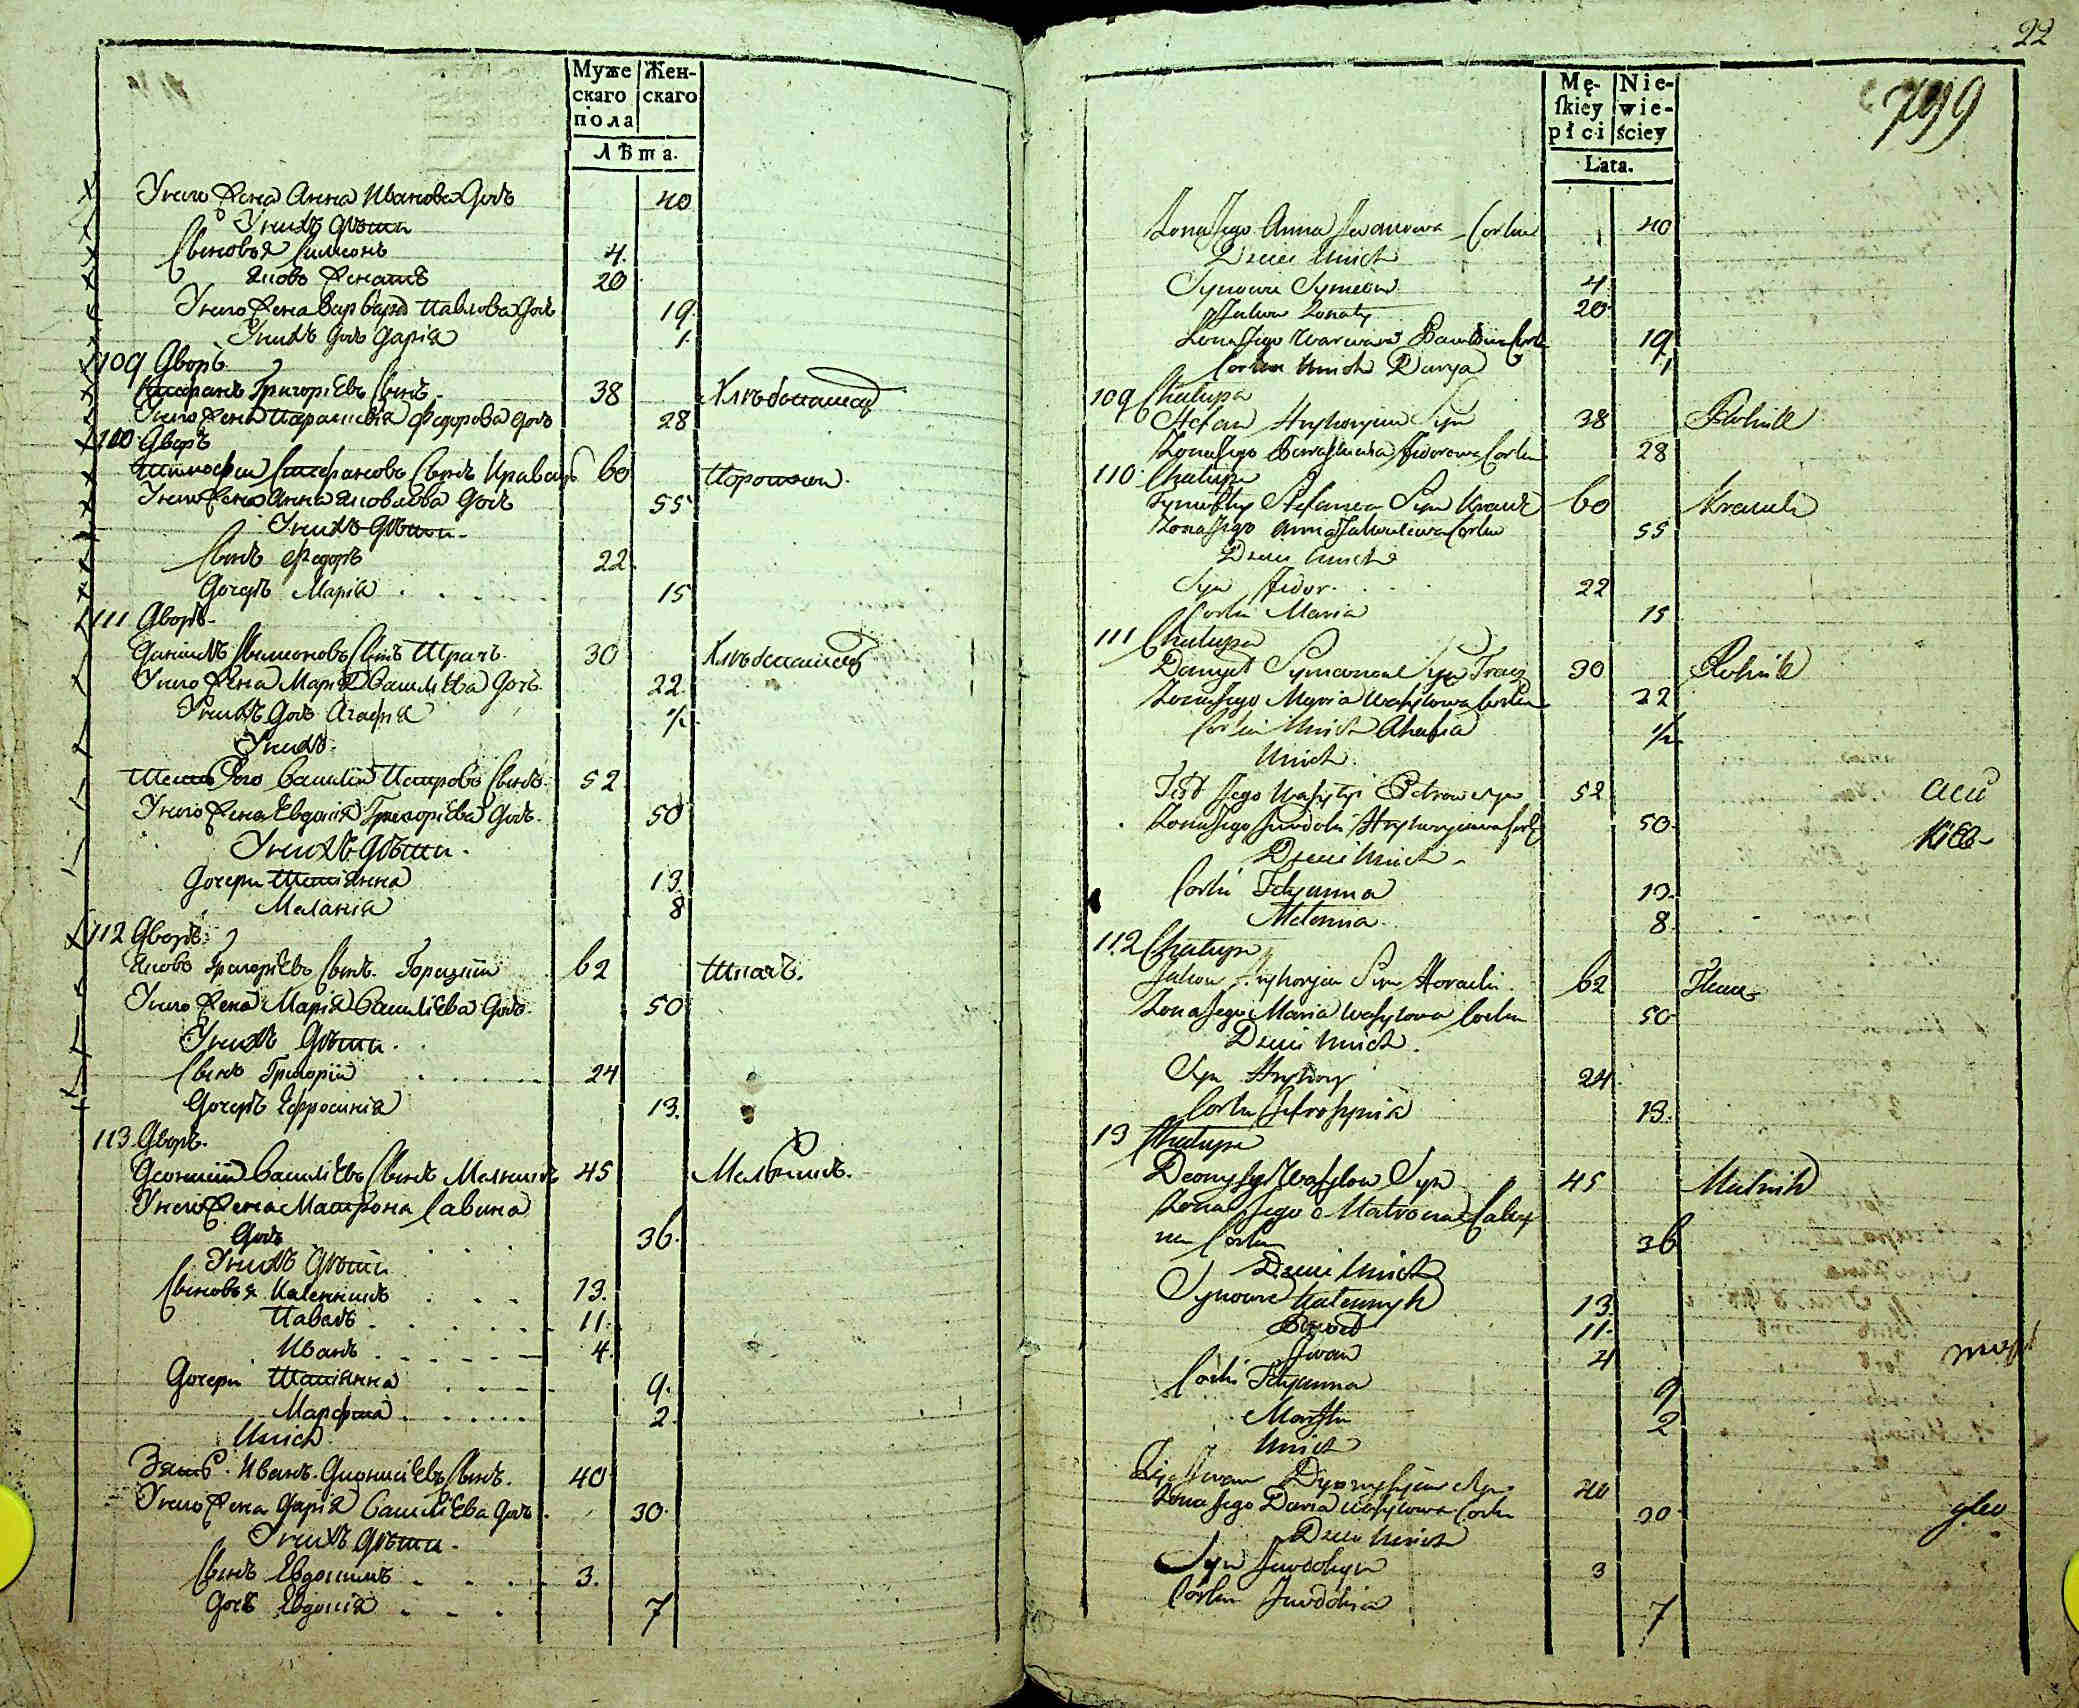 Муже
скаго
пола
Жен-
скаго
Лѣта.
У него жена Анна Иванова доч 40
У нихъ дѣти
Сыновья Симеонъ 4.
Яковъ женатъ 20
У него жена Варвара Павлова доч 19.
У нихъ доч Дарія 1.
109 Дворъ
Стефанъ Григоріевъ сынъ 38 Хлѣбопашец
У него жена Параскевія Федорова доч 28
110 Дворъ
Тимофей Стефановъ сынъ Кравецъ 60
У него жена Анна Яковлева доч 55
У нихъ дѣти.
Сынъ Федоръ 22.
Дочерь Марія 15
111 Дворъ.
Даніилъ Симеоновъ сынъ Ткачъ. 30 Хлѣбопашец
У него жена Марія Василіева доч. 22.
У нихъ доч Агафія 1/2.
У нихъ.
Тесть его Василій Петровъ сынъ. 52
У него жена Евдокія Григоріева доч. 50
У нихъ дѣти.
Дочери Татіянна 13
Меланія 8
112 Дворъ.
Яковъ Григоріевъ сынъ. 62 Ткачъ.
У него жена Марія Василіева доч. 50
У нихъ дѣти.
Сынъ Григорій 24
Дочерь Ефросинія 13.
113 Дворъ.
Василіевъ сынъ Мелникъ 45 Мелникъ.
У него жена Матрона Савина
доч 36.
У нихъ дѣти
Сыновья Каленникъ 13.
Павелъ 11.
Иванъ 4.
Дочери Татіянна 9.
Марфа 2.
Unich
Зять Иванъ Дионисіевъ сынъ. 40
У него жена Дарія Василіева доч. 30.
У нихъ дѣти.
Сынъ Евдокимъ 3.
Доч Евдокія 7
22
799
Mę-
ſkiey
płci
Nie-
wie-
ściey
Lata.
Zona Jego Anna Iwanowa Corka 40
Dzieci Unich
Synowie Symeon 4
Jakow Zonaty 20
Zona Jego Warwara Pawłowa Corka 19
Corka Unich Darya 1
109 Chałupa
Stefan Hryhoryiew Syn 38 Rolnik
Zona Jego Fedorowa Corka 28
110 Chałupa
Tymofiey Stefanow Syn Krawc 60 Krawc
Zona Jego Anna Jakowlewa Corka 55
Dzieci Unich
Syn Fedor 22
Corka Maria 15
111 Chałupa
Danyło Symeonow Syn Tkacz 30 Rolnik
Zona Jego Marya Wasylowa Corka 22
Corka Unich Ahafia 1/2
Unich
Test Jego Wasyłyi Petrow Syn 52
Zona Jego Jewdokia Hryhoryiewa Corka 50.
Dzieci Unich
Corki Tetyanna 13.
Melania 8.
112 Chałupa
Jakow Hryhoryiew Syn 62 Tkacz
Zona Jego Maria Wasylowa Corka 50
Dzieci Unich.
Syn Hryhory 24
Corka Jefrosynia 13.
13 Chałupa
Wasylow Syn 45 Melnik
Zona Jego Matrona Sawy
na Corka 36
Dzieci Unich
Synowie Kalennyk 13
Paweł 11.
Iwan 4
Corki Tetyanna 9
Marfa 2
Unich
Iwan Dyonysyiew Syn 40
Zona Jego Daria Wasylowa Corka 30
Dzieci Unich
Syn Jewdokym 3
Corka Jewdokia 7